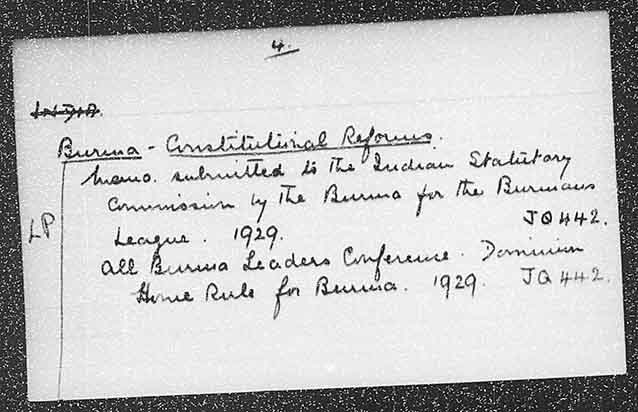 4.
Burma - Constitutional Reforms.
Memo. submitted to the Indian Statutory
Commission by The Burma for the Burmans
LP
League. 1929. JQ 442.
All Burma Leaders Conference. Dominion
Home Rule for Burma. 1929. JQ 442.